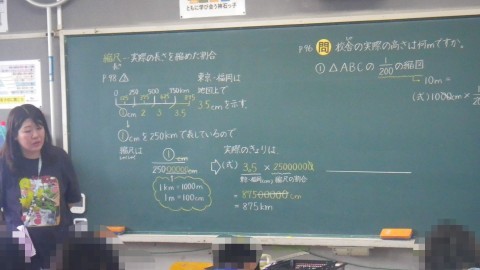 ともに学び合う神石っ子
縮尺…実際の長さを縮めた割合
長さ
P.98 △
0 250 500 750km
125 375 625 875
① 2 3 3.5
東京〜福岡は
地図上で
3.5cmを示す。
①cmを250kmで表しているので
縮尺は
①cm
25000000cm
1km=1000m
1m=100cm
実際のきょりは、
(式) 3.5 × 25000000
東京〜福岡(cm) 縮尺の割合
= 87500000cm
= 875km
P.96 問 校舎の実際の高さは何mですか。
① △ABCの 1/200 の縮図
10m=
(式) 1000cm×